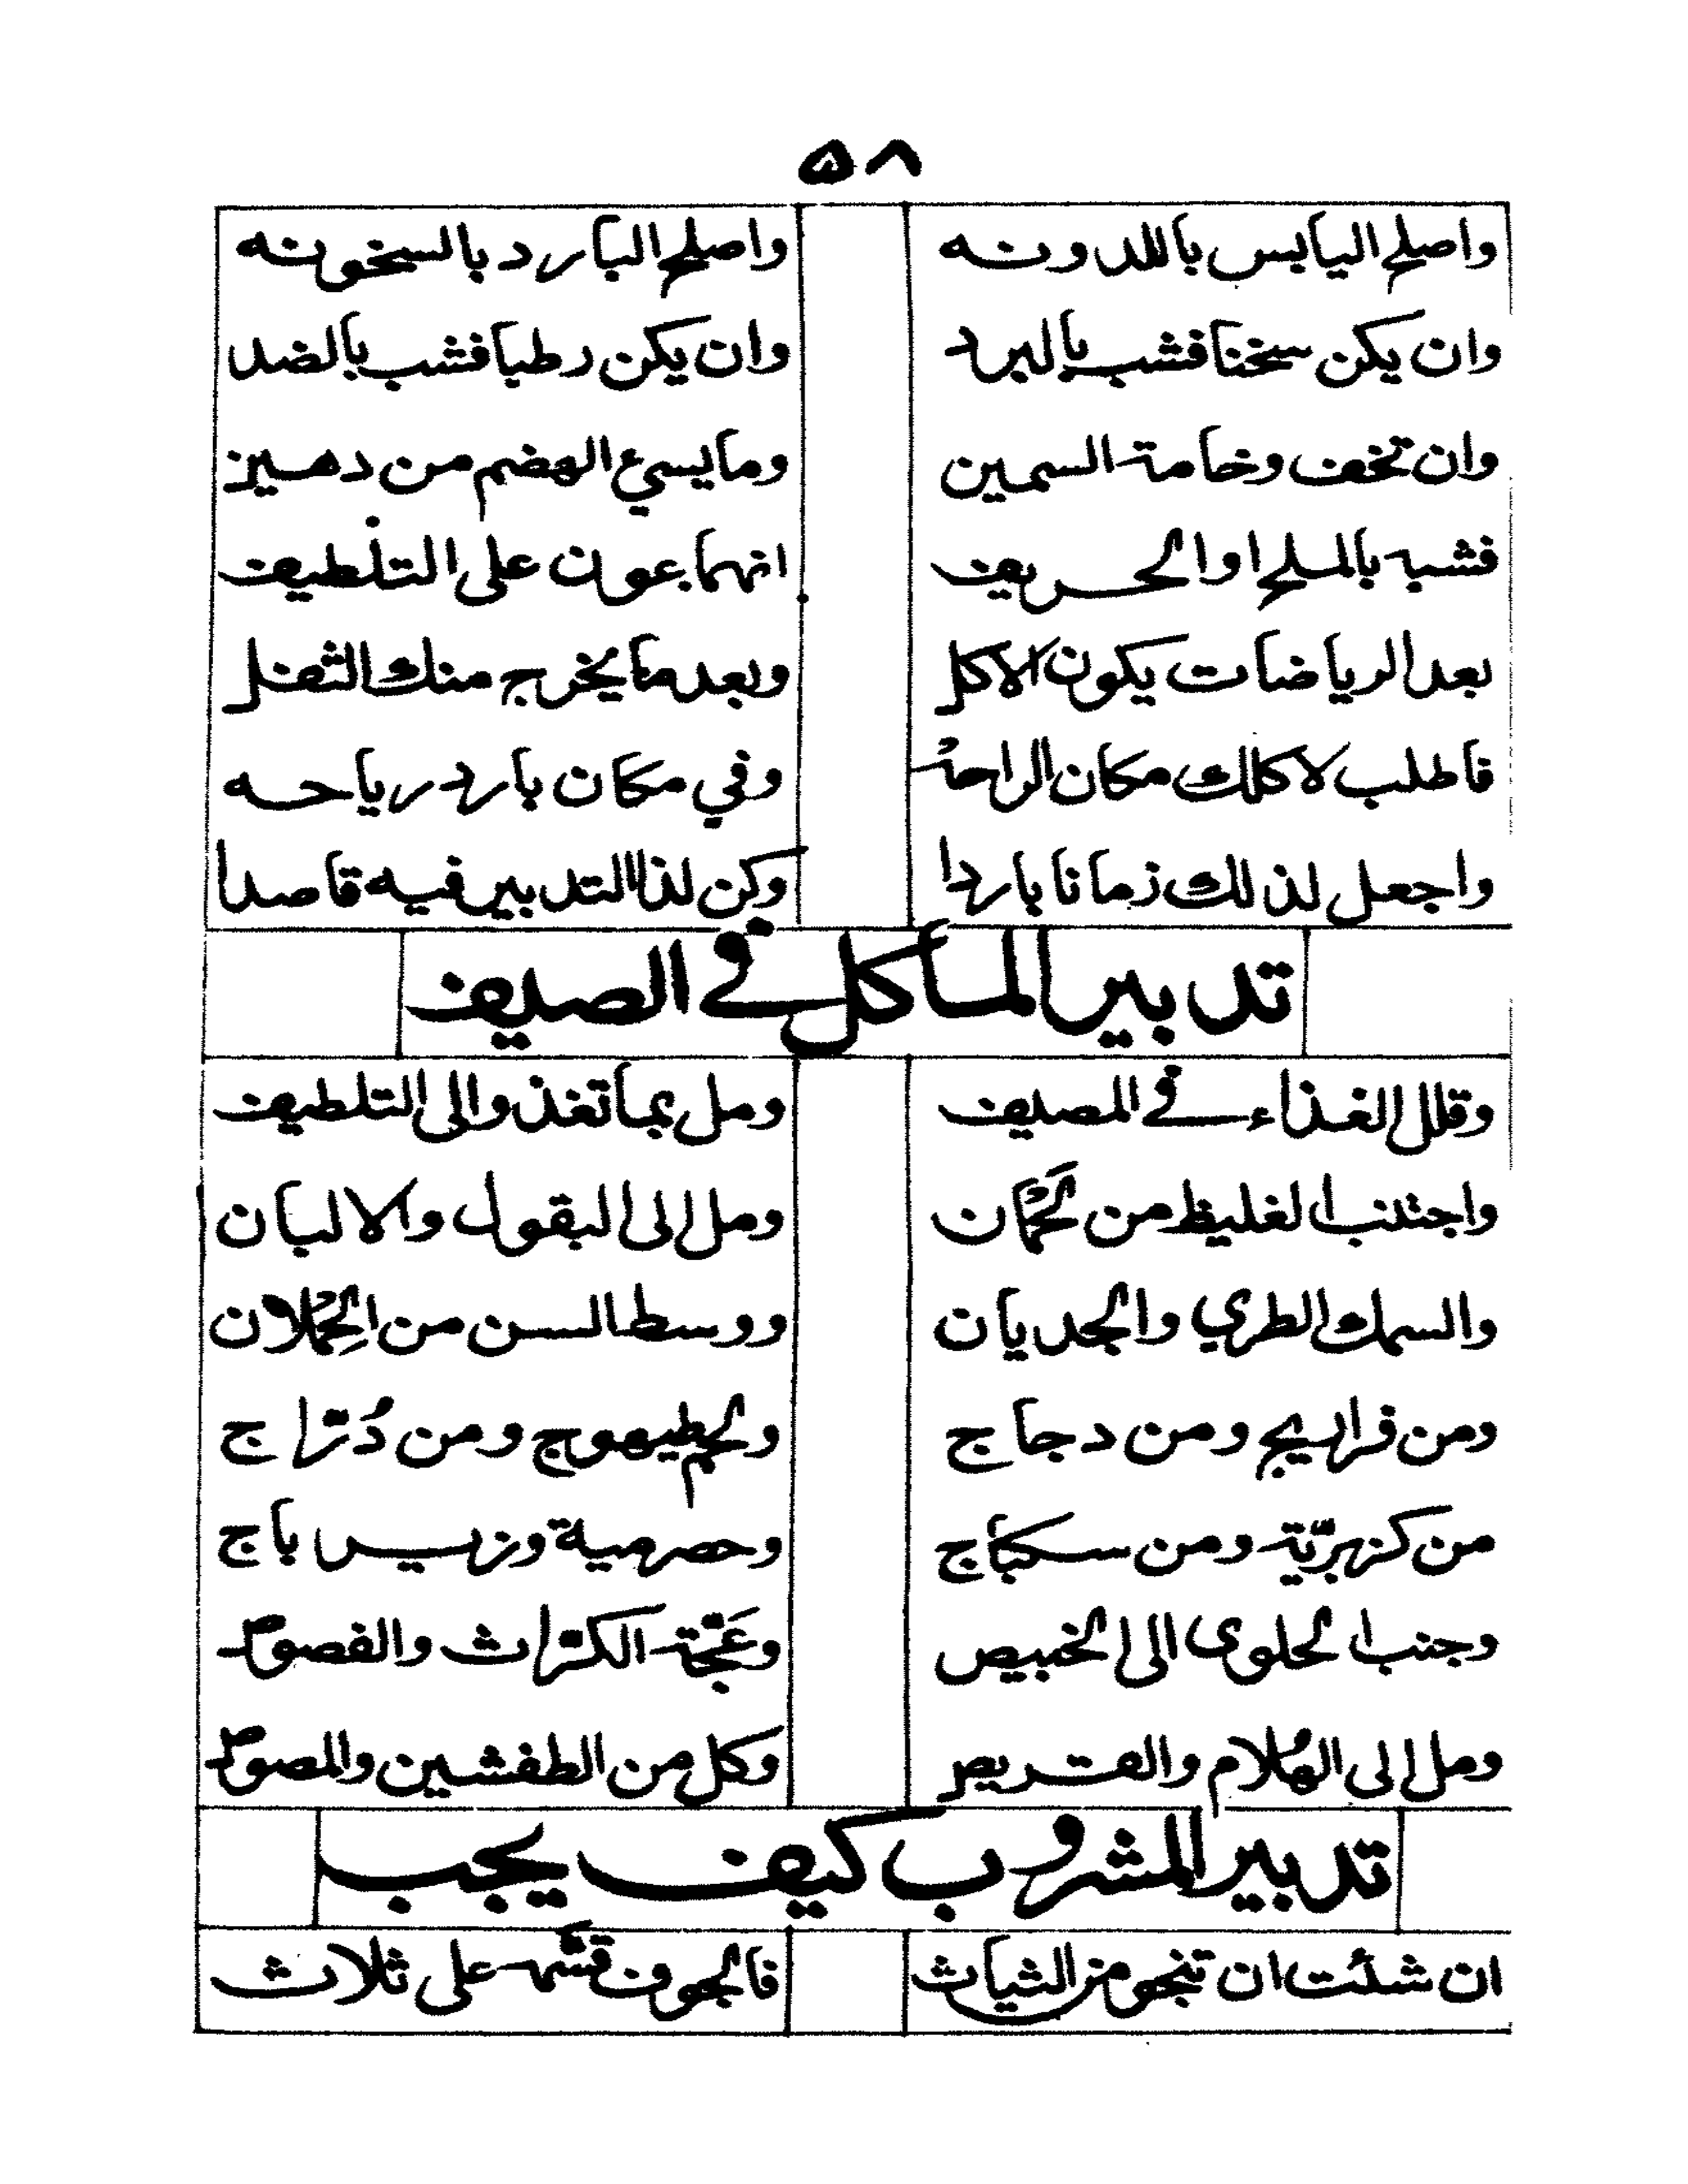 ٥٨
واصلح اليابس باللدونه واصلح البارد بالسخونه
وان يكن سخنا فشب بالبرد وان يكن رطبا فشب بالضد
وان تخف وخامة السمين ومايسيئ الهضم من دهين
فشبه بالملح او الحريف انهما عون على التلطيف
بعد الرياضات يكون الاكل وبعد ما يخرج منك الثفل
فاطلب لاكلك مكان الراحة وفي مكان بارد رياحه
واجعل لذلك زمانا باردا وكن لذا التدبير فيه قاصدا
تدبير المأكل في الصيف
وقلل الغذاء في المصيف ومل بما تغذو الى التلطيف
واجتنب الغليظ من لحمان ومل الى البقول والالبان
والسمك الطري والجديان ووسط السن من الحملان
ومن فراريج ومن دجاج ولحم طيهوج ومن درّاج
من كزبريّة ومن سكباج وحصرمية وزيرباج
وجنب الحلوى الى الخبيص وعجّة الكرّاث والفصوص
ومل الى الهُلام والقريص وكل من الطفشين والمصوص
تدبير المشروب كيف يجب
ان شئت ان تنجو من الثياث فالجوف قسّمه على ثلاث